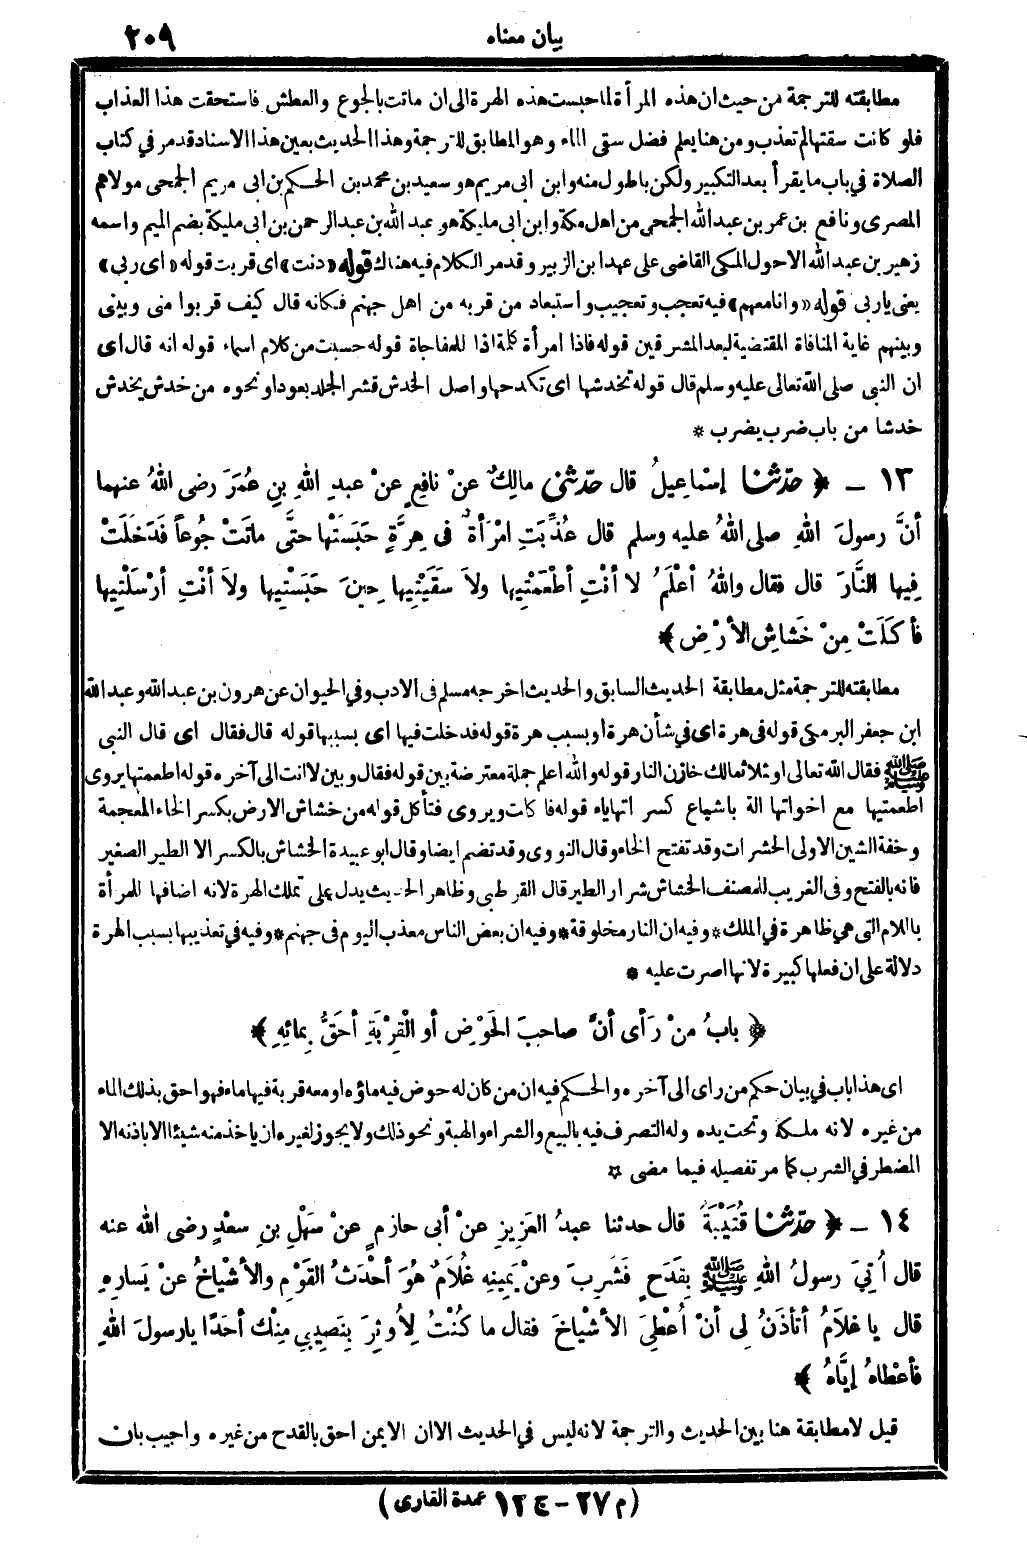 بيان معناه ٢٠٩
مطابقته للترجمة من حيث ان هذه المرأة لما حبست هذه الهرة الى ان ماتت بالجوع والعطش فاستحقت هذا العذاب
فلو كانت سقتها لم تعذب ومن هنا يعلم فضل سقى الماء وهو المطابق للترجمة وهذا الحديث بعين هذا الاسناد قد مر في كتاب
الصلاة في باب ما يقرأ بعد التكبير ولكن باطول منه وابن ابى مريم هو سعيد بن محمد بن الحكم بن ابى مريم الجمحى مولاهم
المصرى ونافع بن عمر بن عبد الله الجمحى من اهل مكة وابن ابى مليكة هو عبد الله بن عبد الرحمن بن ابى مليكة بضم الميم واسمه
زهير بن عبد الله الاحول المكى القاضى على عهد ابن الزبير وقد مر الكلام فيه هناك قوله «دنت» اى قربت قوله «اى ربى»
يعنى ياربى قوله «وانا معهم» فيه تعجب وتعجيب واستبعاد من قربه من اهل جهنم فكانه قال كيف قربوا منى وبينى
وبينهم غاية المنافاة المقتضية لبعد المشرقين قوله فاذا امرأة كلمة اذا للمفاجاة قوله حسبت من كلام اسماء قوله انه قال اى
ان النبى صلى الله تعالى عليه وسلم قال قوله تخدشها اى تكدحها واصل الخدش قشر الجلد بعود او نحوه من خدش يخدش
خدشا من باب ضرب يضرب *
١٣ ــ ﴿ حدّثنا إسْماعِيلُ قال حدّثنى مالِكٌ عنْ نافِعٍ عنْ عبدِ اللهِ بنِ عُمَرَ رضى اللهُ عنهما
أنَّ رسولَ اللهِ صلى اللهُ عليه وسلم قال عُذِّبَتِ امْرَأةٌ فى هِرَّةٍ حَبَسَتْها حتَّى ماتَتْ جُوعاً فَدَخَلَتْ
فِيها النَّارَ قال فقال واللهُ أعْلَمُ لا أنْتِ أطْعَمْتِيها ولاَ سَقَيْتِيها حِينَ حَبَسْتِيها ولاَ أنْتِ أرْسَلْتِيها
فأكَلَتْ مِنْ خَشاشِ الأرْضِ ﴾
مطابقته للترجمة مثل مطابقة الحديث السابق والحديث اخرجه مسلم فى الادب وفي الحيوان عن هرون بن عبد الله وعبد الله
ابن جعفر البرمكى قوله فى هرة اى في شأن هرة او بسبب هرة قوله فدخلت فيها اى بسببها قوله قال فقال اى قال النبى
ﷺ فقال الله تعالى او مثلا مالك خازن النار قوله والله اعلم جملة معترضة بين قوله فقال وبين لا انت الى آخره قوله اطعمتها يروى
اطعمتيها مع اخواتها الثلاثة باشباع كسر اتها ياء قوله فا كلت ويروى فتأكل قوله من خشاش الارض بكسر الخاء المعجمة
وخفة الشين الاولى الحشرات وقد تفتح الخاء وقال النووى وقد تضم ايضا وقال ابو عبيدة الخشاش بالكسر الا الطير الصغير
فانه بالفتح وفى الغريب للمصنف الخشاش شرار الطير قال القرطبى وظاهر الحديث يدل على تملك الهرة لانه اضافها للمرأة
باللام التى هي ظاهرة في الملك * وفيه ان النار مخلوقة * وفيه ان بعض الناس معذب اليوم فى جهنم * وفيه في تعذيبها بسبب الهرة
دلالة على ان فعلها كبيرة لانها اصرت عليه *
﴿ بابُ منْ رَأى أنَّ صاحِبَ الحَوْضِ أوِ الْقِرْبَةِ أحَقُّ بِمائِهِ ﴾
اى هذا باب في بيان حكم من راى الى آخره والحكم فيه ان من كان له حوض فيه ماؤه او معه قربة فيها ماء فهو احق بذلك الماء
من غيره لانه ملكه وتحت يده وله التصرف فيه بالبيع والشراء والهبة ونحو ذلك ولا يجوز لغيره ان ياخذ منه شيئا الا باذنه الا
المضطر في الشرب كما مر تفصيله فيما مضى *
١٤ ــ ﴿ حدّثنا قُتَيْبَةُ قال حدثنا عبدُ العَزِيزِ عنْ أبى حازمٍ عنْ سَهْلِ بنِ سعْدٍ رضى الله عنه
قال أُتِيَ رسولُ اللهِ ﷺ بِقَدَحٍ فَشَرِبَ وعنْ يَمِينِهِ غُلاَمٌ هُوَ أحْدَثُ القَوْمِ والأشْياخُ عنْ يَسارِهِ
قال يا غلاَمُ أتأذَنُ لِى أنْ أُعْطِىَ الأشْياخَ فقال ما كُنْتُ لِأُوثِرَ بِنَصِيبِي مِنْكَ أحَدًا يارسولَ اللهِ
فأعْطاهُ إيَّاهُ ﴾
قيل لا مطابقة هنا بين الحديث والترجمة لانه ليس في الحديث الا ان الايمن احق بالقدح من غيره واجيب بان
(م ٢٧ - ج ١٢ عمدة القارى)